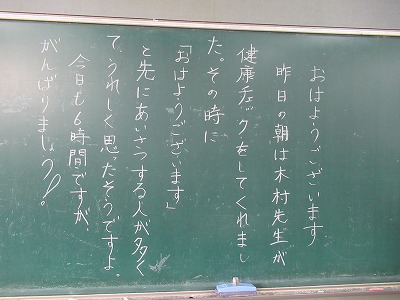 おはようございます
昨日の朝は木村先生が
健康チェックをしてくれまし
た。その時に
「おはようございます」
と先にあいさつする人が多く
てうれしく思ったそうですよ。
今日も6時間ですが、
がんばりましょう!